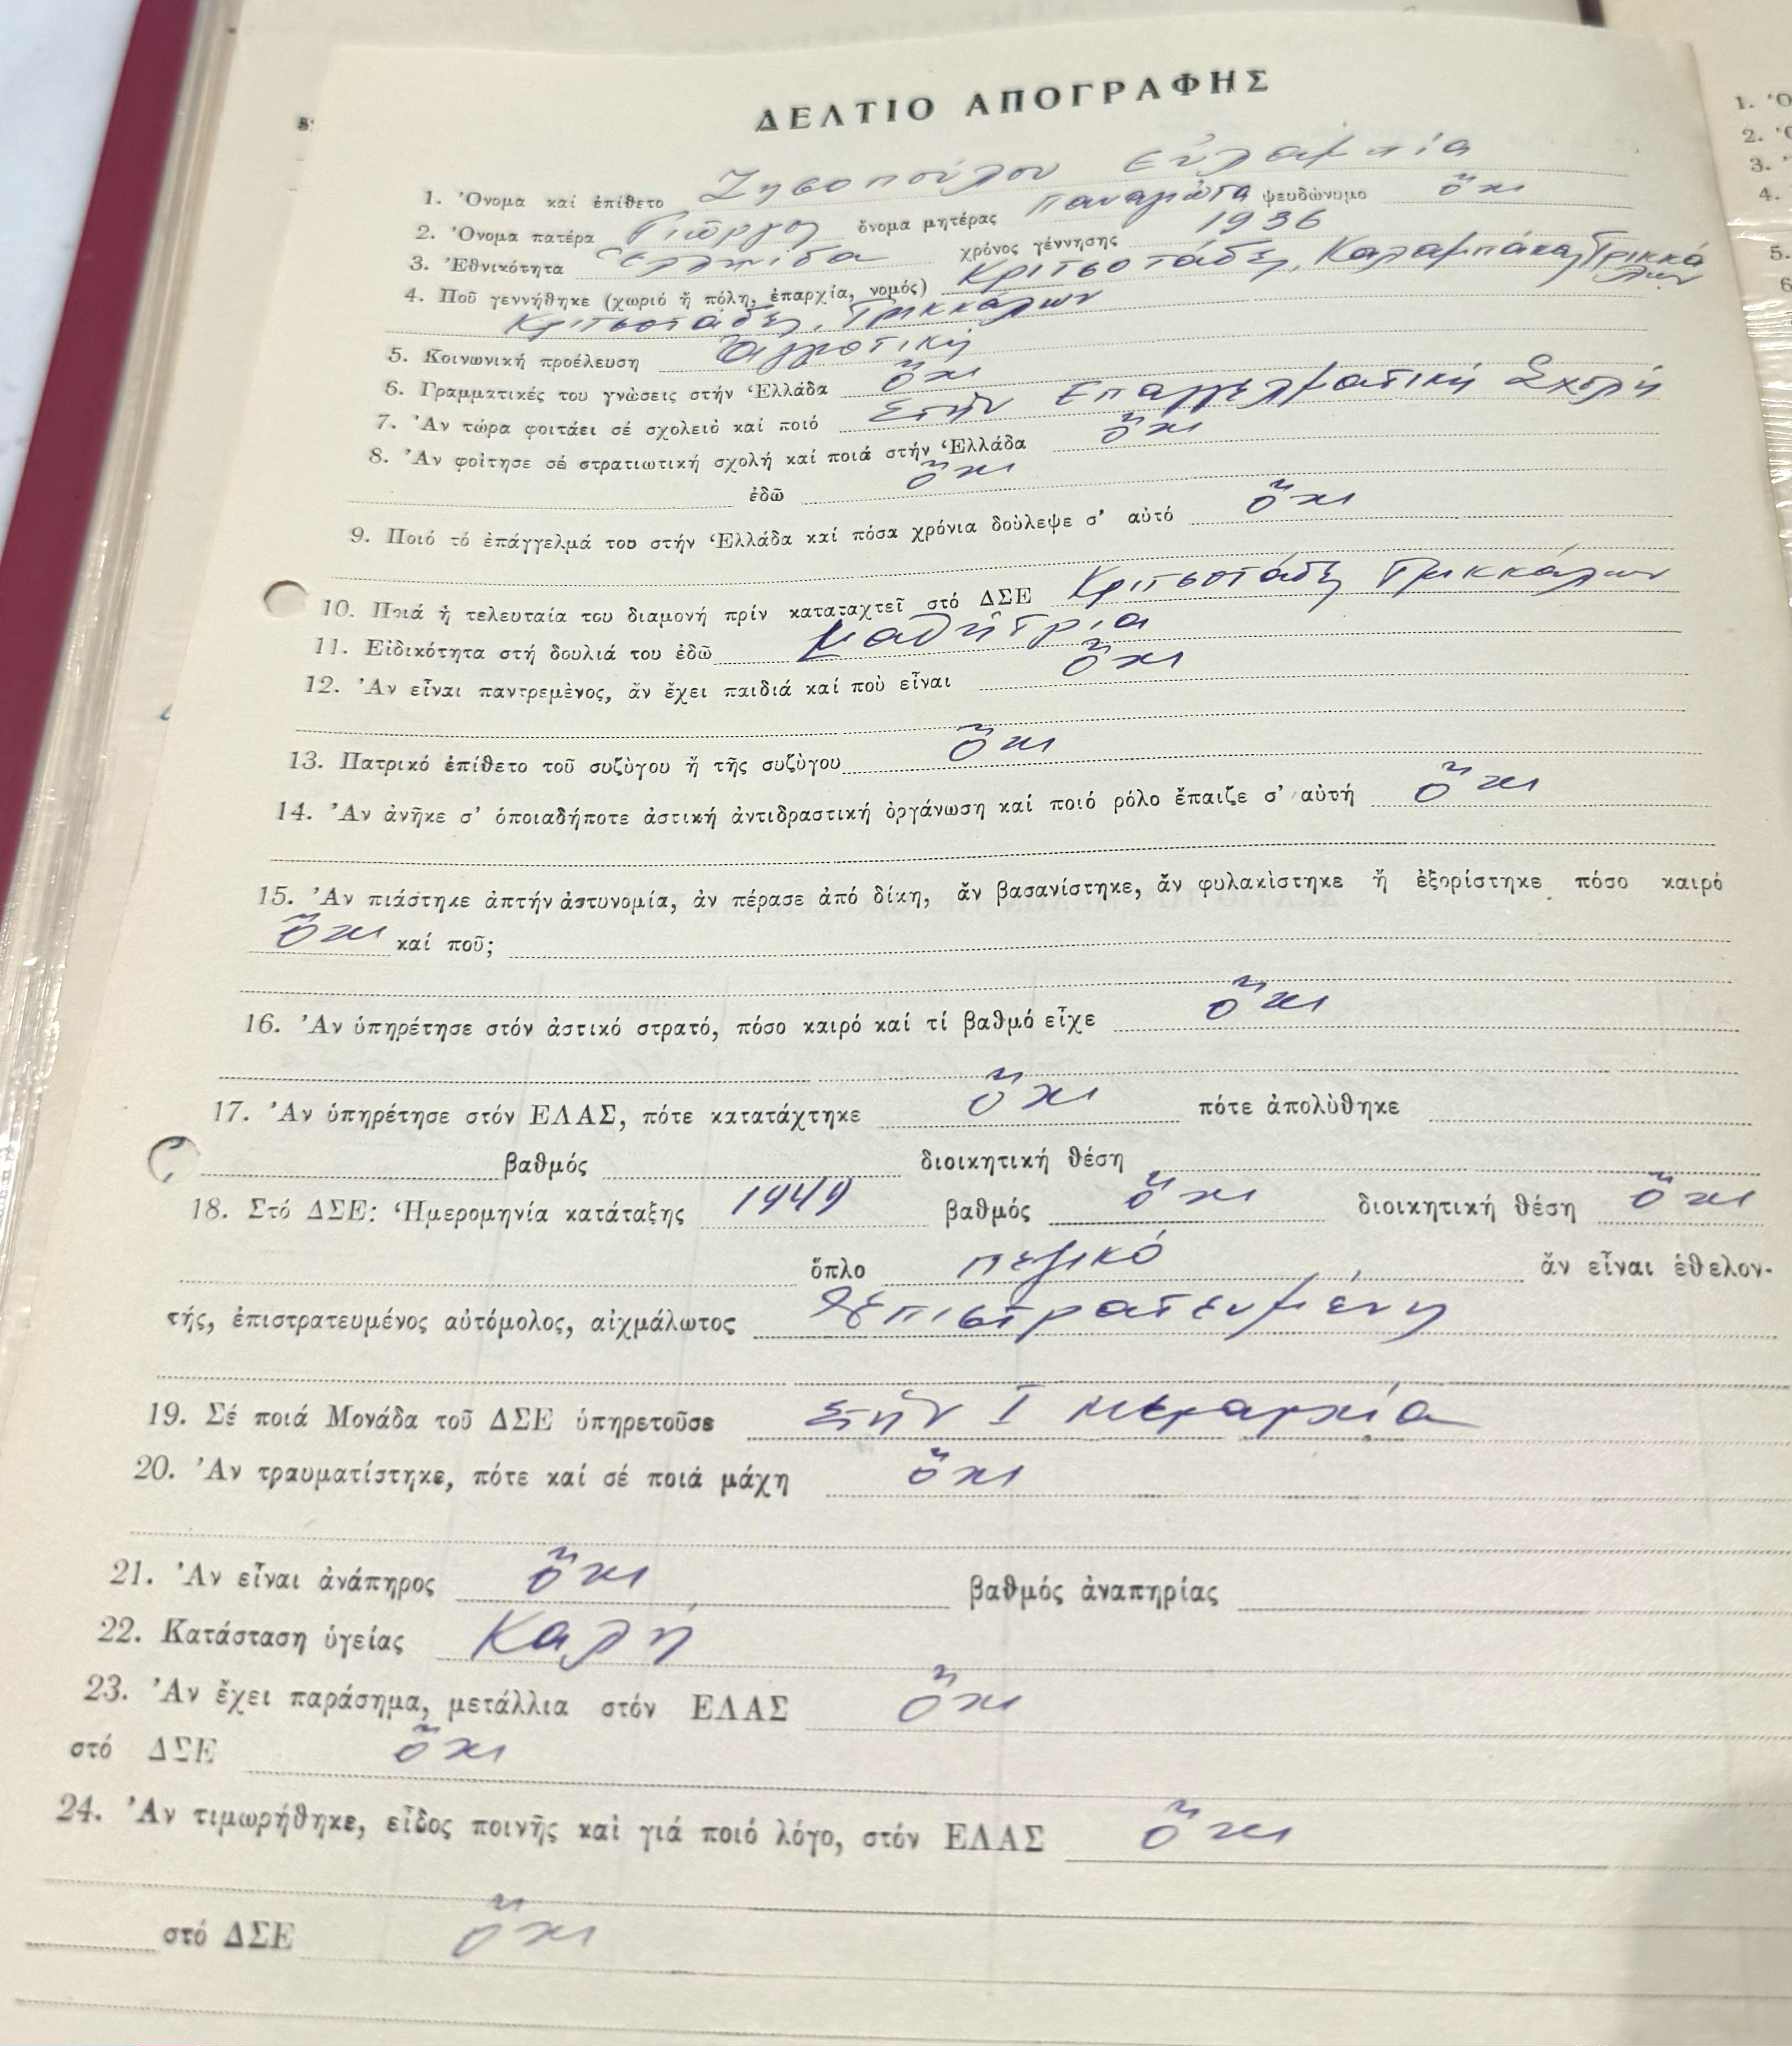 ΔΕΛΤΙΟ ΑΠΟΓΡΑΦΗΣ
1. Ὄνομα καί ἐπίθετο Ζησοπούλου Εὐλαμπία
2. Ὄνομα πατέρα Γιῶργος ὄνομα μητέρας Παναγιώτα ψευδώνυμο ὄχι
3. Ἐθνικότητα Ἑλληνίδα χρόνος γέννησης 1936
4. Ποῦ γεννήθηκε (χωριό ἤ πόλη, ἐπαρχία, νομός) Κριτσοτάδες, Καλαμπάκας Τρικκά
λων
Κριτσοτάδες, Τρικκάλων
5. Κοινωνική προέλευση Ἀγροτική
6. Γραμματικές του γνώσεις στήν Ἑλλάδα ὄχι
7. Ἄν τώρα φοιτάει σέ σχολειό καί ποιό Στήν Ἐπαγγελματική Σχολή
8. Ἄν φοίτησε σέ στρατιωτική σχολή καί ποιά στήν Ἑλλάδα ὄχι
ἐδῶ ὄχι
9. Ποιό τό ἐπάγγελμά του στήν Ἑλλάδα καί πόσα χρόνια δούλεψε σ' αὐτό ὄχι
10. Ποιά ἡ τελευταία του διαμονή πρίν καταταχτεῖ στό ΔΣΕ Κριτσοτάδες Τρικκάλων
11. Εἰδικότητα στή δουλιά του ἐδῶ μαθήτρια
12. Ἄν εἶναι παντρεμένος, ἄν ἔχει παιδιά καί ποὺ εἶναι ὄχι
13. Πατρικό ἐπίθετο τοῦ συζὺγου ἤ τῆς συζὺγου ὄχι
14. Ἄν ἀνῆκε σ' ὁποιαδήποτε ἀστική ἀντιδραστική ὀργάνωση καί ποιό ρόλο ἔπαιζε σ' αὐτή ὄχι
15. Ἄν πιάστηκε ἀπτήν ἀστυνομία, ἀν πέρασε ἀπό δίκη, ἄν βασανίστηκε, ἄν φυλακὶστηκε ἤ ἐξορίστηκε πόσο καιρό
ὄχι καί ποῦ;
16. Ἄν ὑπηρέτησε στόν ἀστικό στρατό, πόσο καιρό καί τί βαθμό εἶχε ὄχι
17. Ἄν ὑπηρέτησε στόν ΕΛΑΣ, πότε κατατάχτηκε ὄχι πότε ἀπολὺθηκε
βαθμός διοικητική θέση
18. Στό ΔΣΕ: Ἡμερομηνία κατάταξης 1949 βαθμός ὄχι διοικητική θέση ὄχι
ὅπλο πεζικό ἄν εἶναι ἐθελον-
τής, ἐπιστρατευμένος αὐτόμολος, αἰχμάλωτος Ἐπιστρατευμένη
19. Σέ ποιά Μονάδα τοῦ ΔΣΕ ὑπηρετοῦσε Στήν Ι Μεραρχία
20. Ἄν τραυματίστηκε, πότε καί σέ ποιά μάχη ὄχι
21. Ἄν εἶναι ἀνάπηρος ὄχι βαθμός ἀναπηρίας
22. Κατάσταση ὑγείας Καλή
23. Ἄν ἔχει παράσημα, μετάλλια στόν ΕΛΑΣ ὄχι
στό ΔΣΕ ὄχι
24. Ἄν τιμωρήθηκε, εἶδος ποινῆς καὶ γιά ποιό λόγο, στόν ΕΛΑΣ ὄχι
στό ΔΣΕ ὄχι